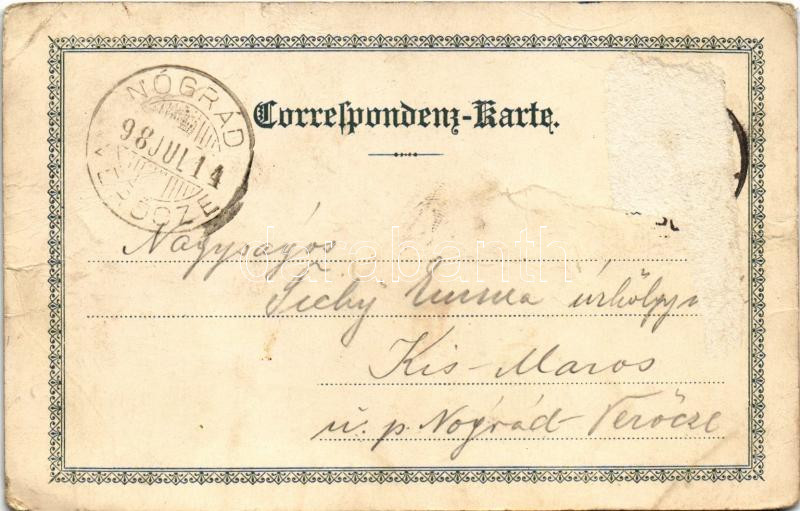 Correspondenz-Karte.
NÓGRÁD
98 JUL 14
VERŐCZE
Nagyságos
Tichy Emma úrhölgy
Kis-Maros
u. p. Nógrád-Verőcze
darabanth